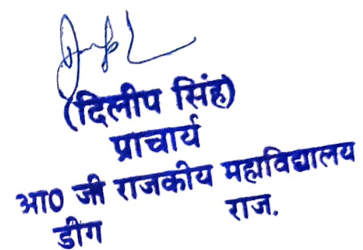 (दिलीप सिंह)
प्राचार्य
आ0 जी राजकीय महाविद्यालय
डीग राज.